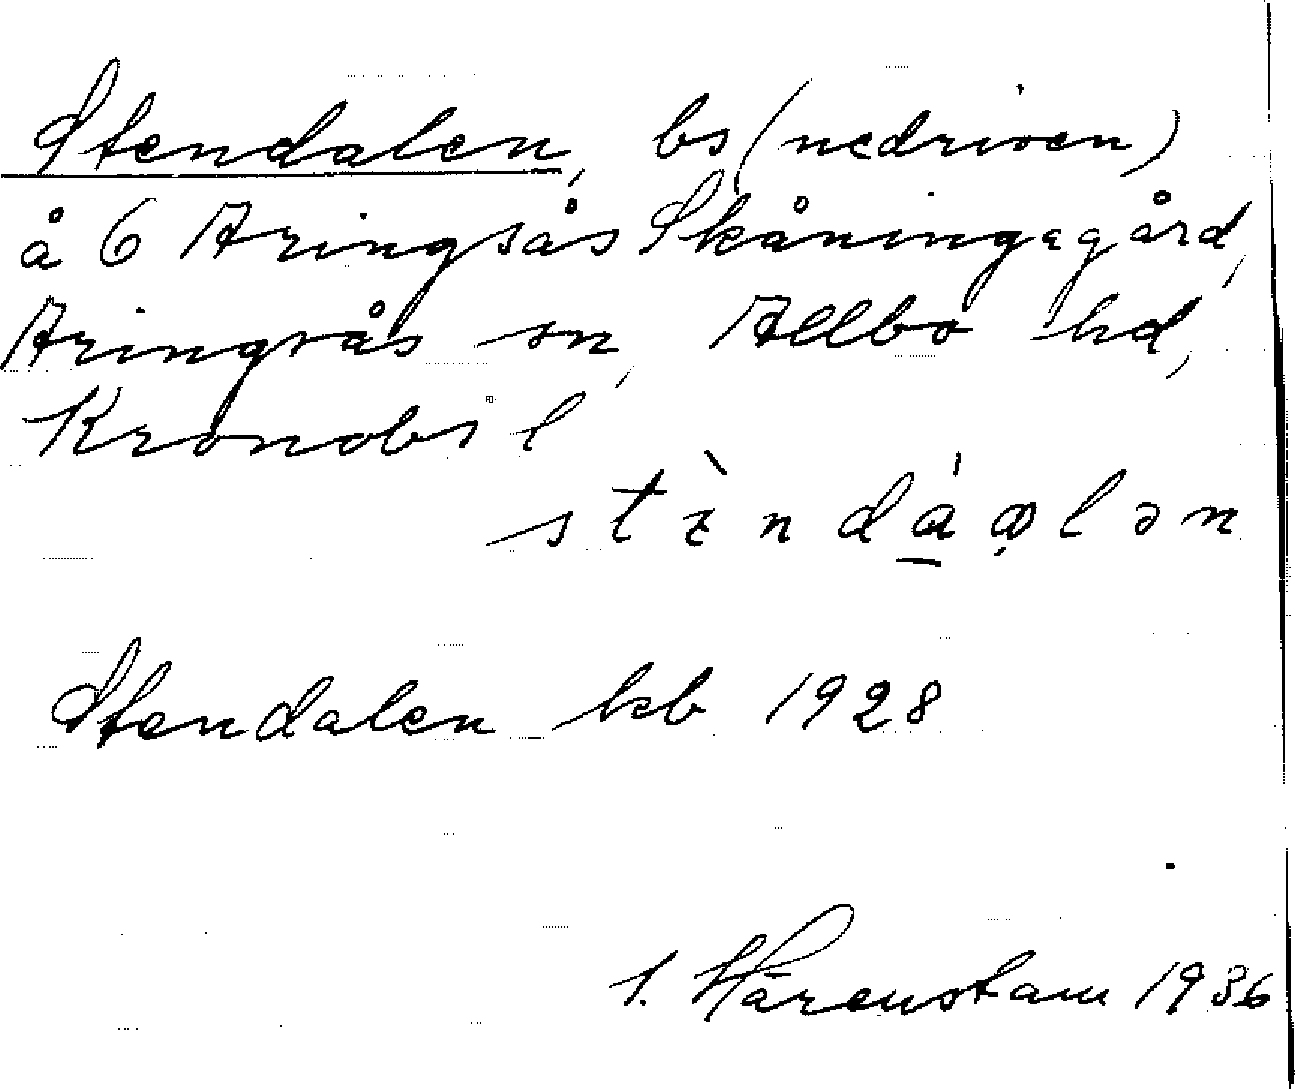 Stendalen, bs (nedriven)
å 6 Aringsås Skåningagård,
Aringsås sn, Allbo hd,
Kronobs l
Stendalen kb 1928
S. Härenstam 1936